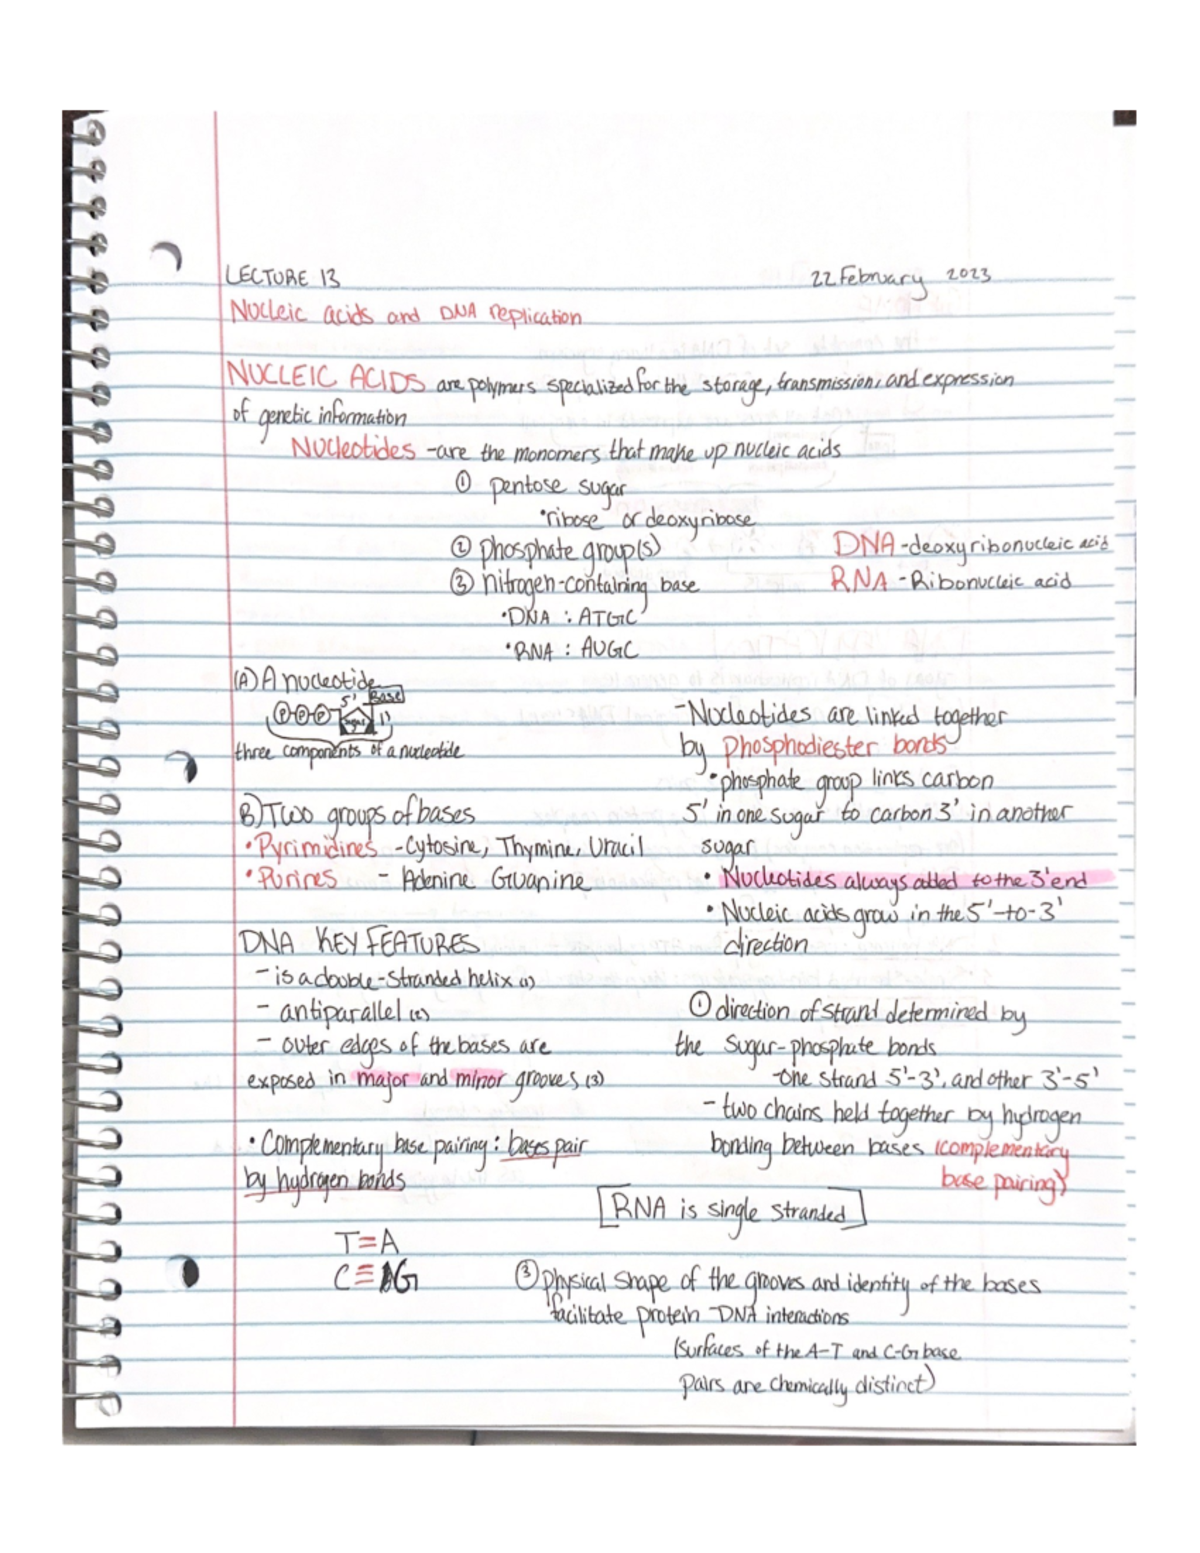 LECTURE 13 22 February 2023
Nucleic acids and DNA Replication
NUCLEIC ACIDS are polymers specialized for the storage, transmission, and expression
of genetic information
Nucleotides - are the monomers that make up nucleic acids
① pentose sugar
• ribose or deoxyribose
② phosphate group(s)
③ nitrogen-containing base
• DNA : ATGC
• RNA : AUGC
DNA - deoxyribonucleic acid
RNA - Ribonucleic acid
(A) A nucleotide
5' Base
P P P sugar 1'
three components of a nucleotide
B) Two groups of bases
• Pyrimidines - Cytosine, Thymine, Uracil
• Purines - Adenine Guanine
- Nucleotides are linked together
by Phosphodiester bonds
• phosphate group links carbon
5' in one sugar to carbon 3' in another
sugar
• Nucleotides always added to the 3' end
• Nucleic acids grow in the 5'-to-3'
direction
DNA KEY FEATURES
- is a double-stranded helix (1)
- antiparallel (2)
- outer edges of the bases are
exposed in major and minor grooves (3)
• Complementary base pairing : bases pair
by hydrogen bonds
T=A
C≡G
① direction of strand determined by
the sugar-phosphate bonds
- one strand 5'-3', and other 3'-5'
- two chains held together by hydrogen
bonding between bases (complementary
base pairing)
[RNA is single stranded]
③ Physical shape of the grooves and identity of the bases
facilitate protein-DNA interactions
(surfaces of the A-T and C-G base
pairs are chemically distinct)